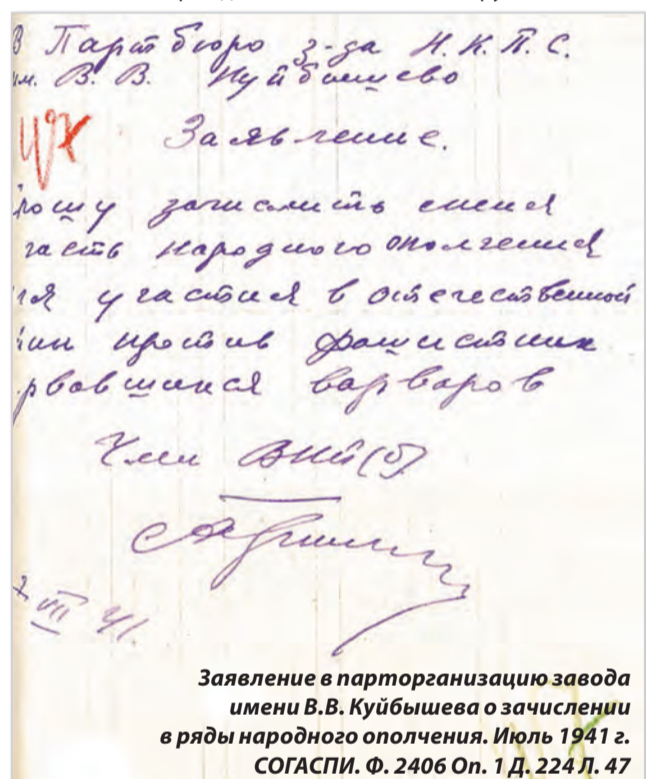 В Парт бюро з-да Н.К.П.С.
им. В. В. Куйбышево
Заявление.
рошу зачислить меня
часть народного ополчения
ля участия в отечественной
против фашистких
рвавшихся варваров
Член ВКП(б)
VII 41.
Заявление в парторганизацию завода
имени В.В. Куйбышева о зачислении
в ряды народного ополчения. Июль 1941 г.
СОГАСПИ. Ф. 2406 Оп. 1 Д. 224 Л. 47